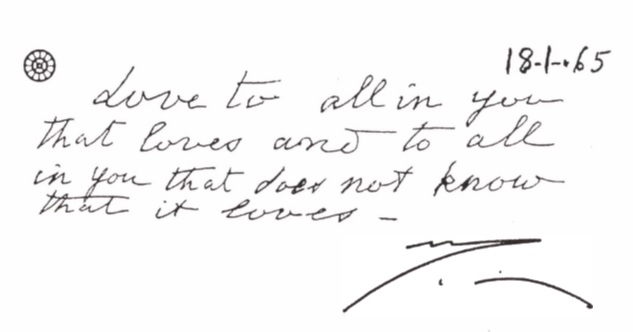 18-1-.65
Love to all in you
that loves and to all
in you that does not know
that it loves -